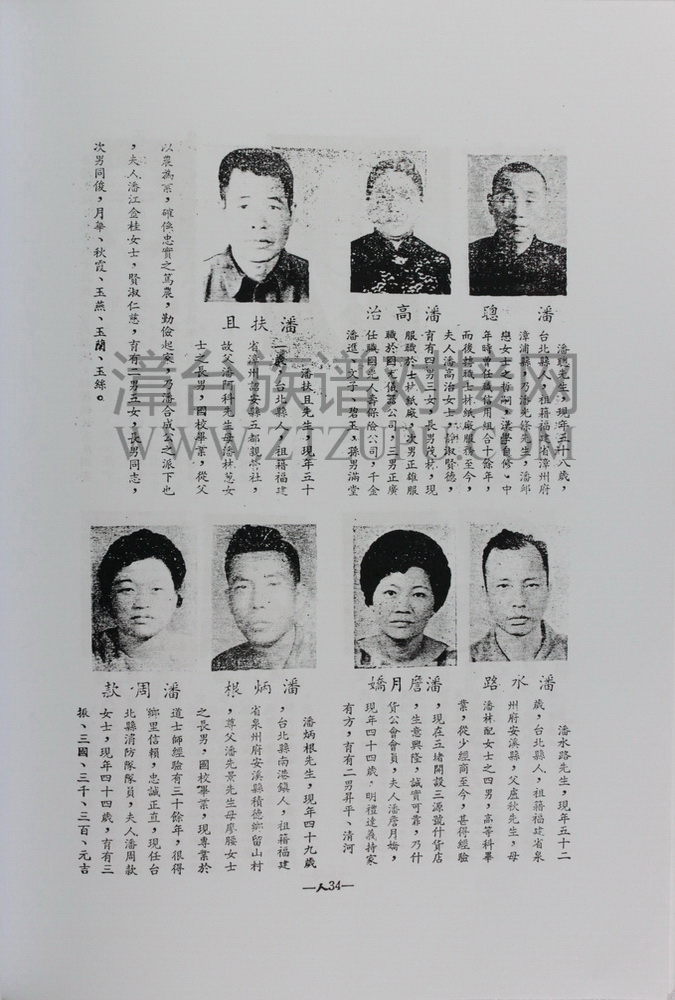 潘聰
潘高治
潘聰先生，現年五十八歲，
台北縣人，祖籍福建省漳州府
漳浦縣，乃潘光條先生，潘邱
戀女士之哲嗣，漢學自修。中
年時曾任職信用組合十餘年，
而後轉職士林紙廠服務至今，
夫人潘高治女士，靜淑賢德，
育有四男三女，長男茂林，現
服職於士林紙廠，次男正雄服
職於國王儀器公司，三男正廣
任職國光人壽保險公司，千金
潘進、文子、碧玉，孫男滿堂
潘扶且
潘扶且先生，現年五十
一歲，台北縣人，祖籍福建
省漳州詔安縣五都親營社，
故父潘阿科先生母潘林葱女
士之長男，國校畢業，從父
以農為業，確係忠實之篤農，勤儉起家，乃潘合成公之派下也
，夫人潘江金桂女士，賢淑仁慈，育有二男五女，長男同志，
次男同俊，月華、秋霞、玉燕、玉蘭、玉絲。
漳台族谱对接网
WWW.ZTZUPU.COM
潘水路
潘詹月嬌
潘水路先生，現年五十二
歲，台北縣人，祖籍福建省泉
州府安溪縣，父盧秋先生，母
潘林配女士之四男，高等科畢
業，從少經商至今，甚得經驗
，現在五堵開設三源號什貨店
，生意興隆，誠實可靠，乃什
貨公會會員，夫人潘詹月嬌，
現年四十四歲，明禮達義持家
有方，育有二男昇平、清河
潘炳根
潘周款
潘炳根先生，現年四十九歲
，台北縣南港鎮人，祖籍福建
省泉州府安溪縣積德鄉留山村
，尊父潘先景先生母廖腰女士
之長男，國校畢業，現專業於
道士師經驗有三十餘年，很得
鄉里信賴，忠誠正直，現任台
北縣消防隊隊員，夫人潘周款
女士，現年四十四歲，育有三
振、三國、三千、三百、元吉
—人34—